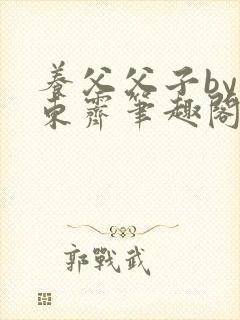 養父父子by
東霽筆趣閣
郭戰武